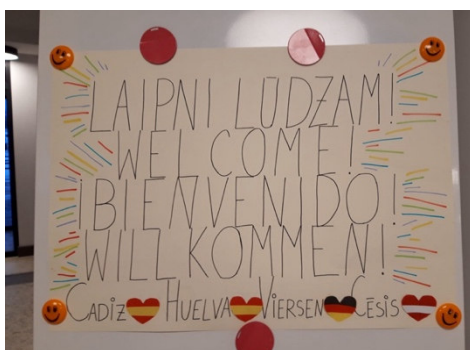 LAIPNI LŪDZAM!
WELCOME!
¡BIENVENIDO!
WILLKOMMEN!
CADIZ HUELVA VIERSEN CĒSIS